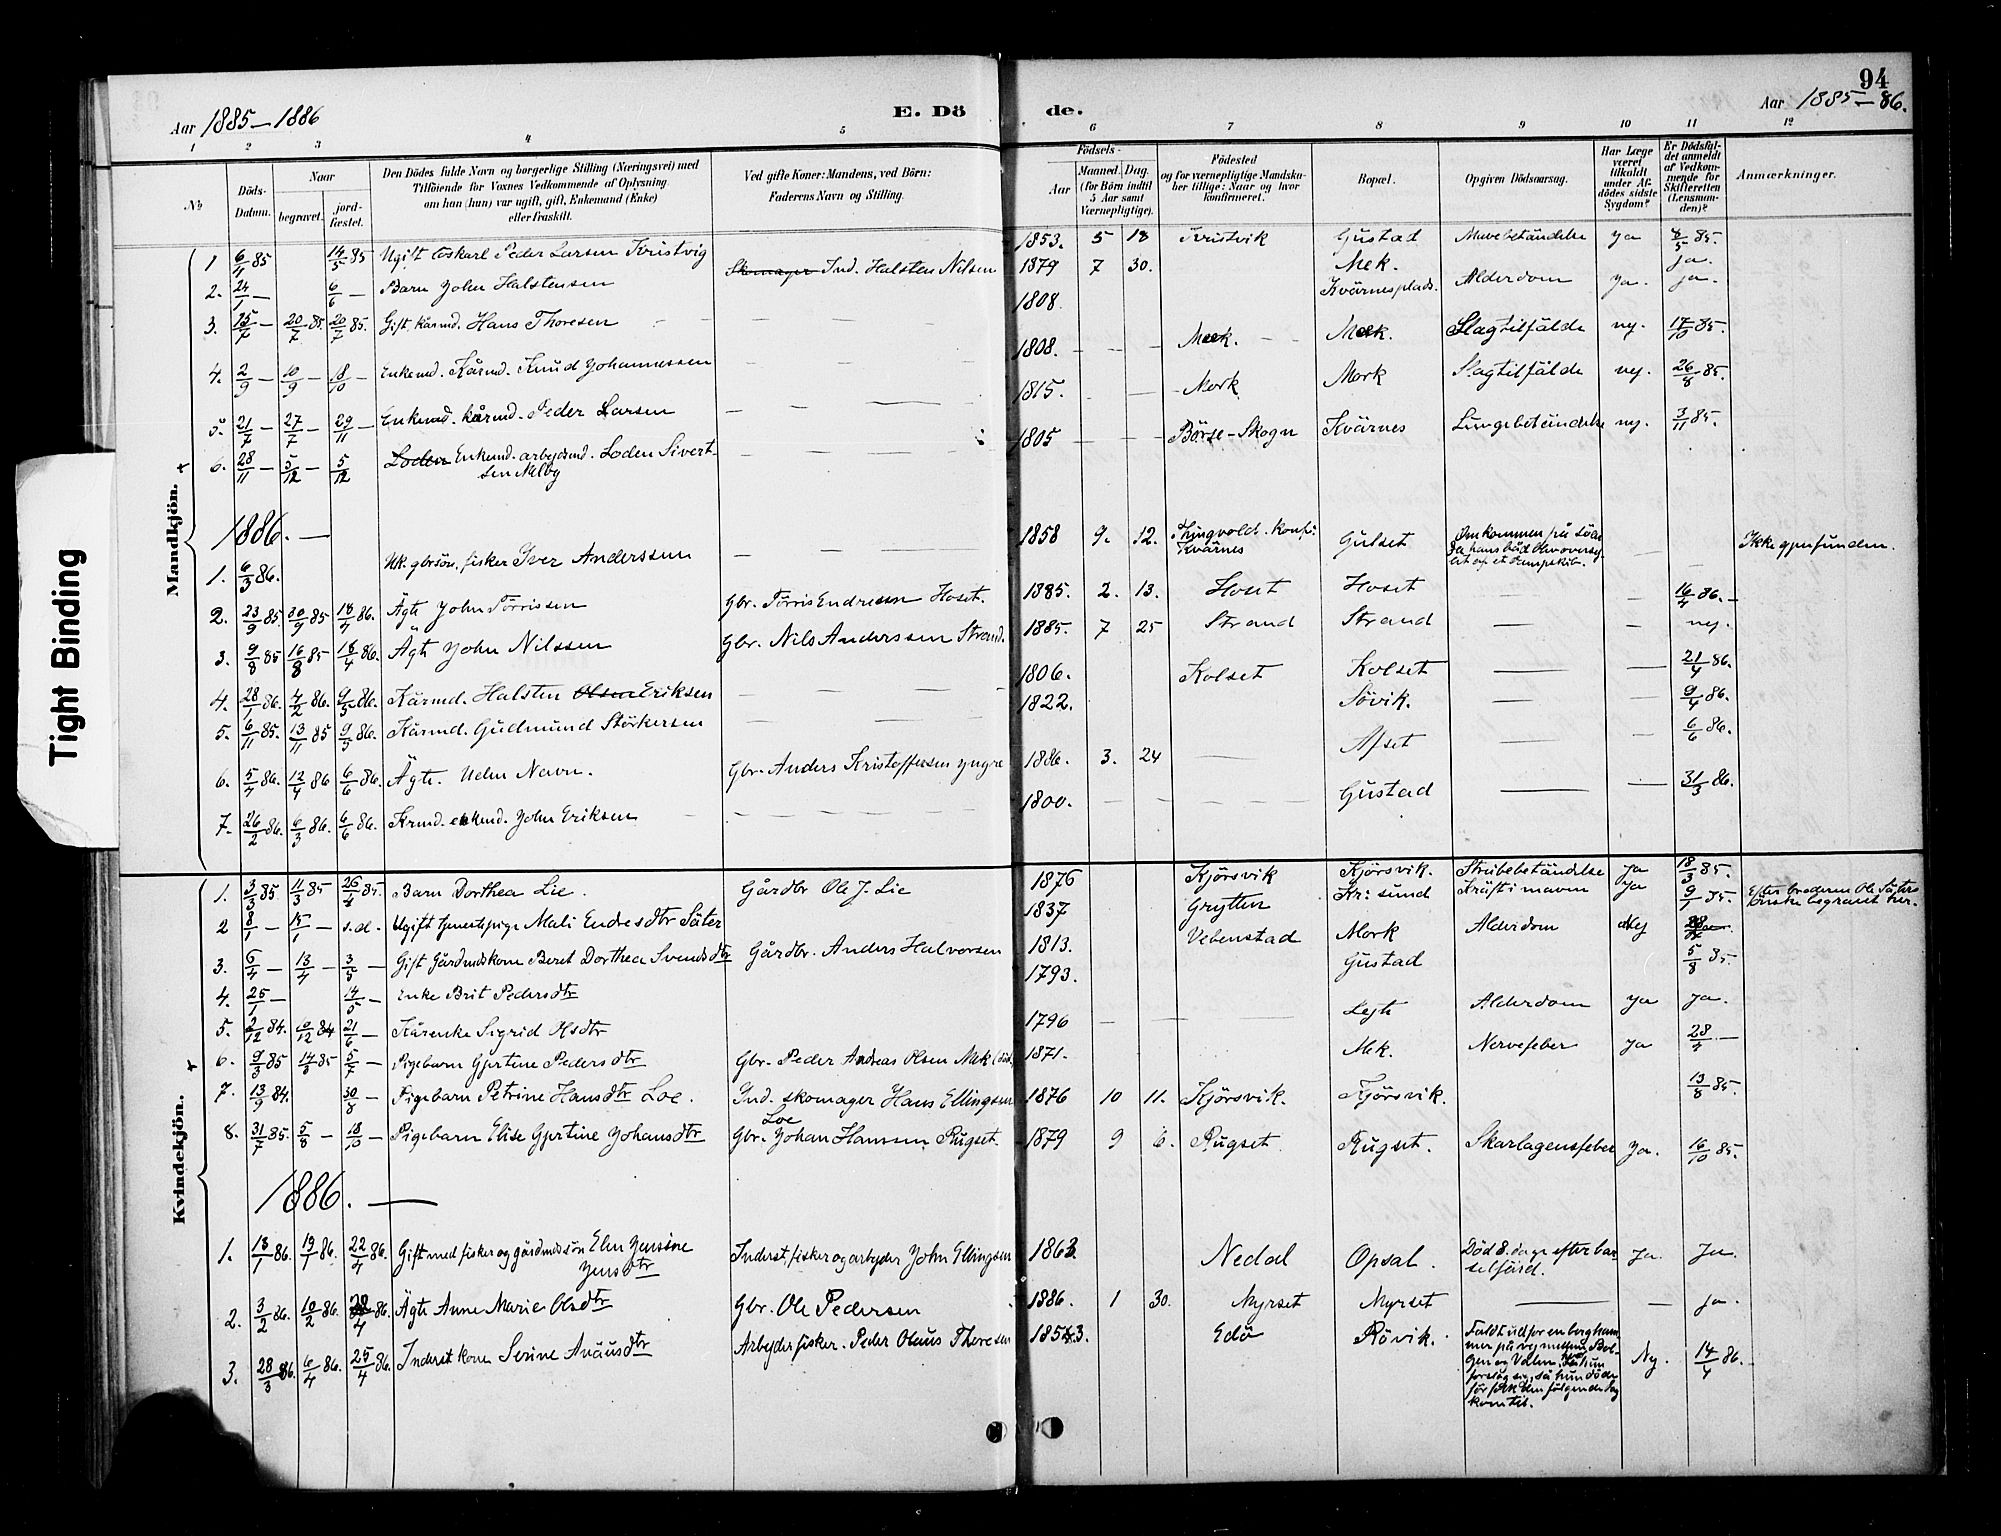 94
Aar 1885 – 1886
E. Dö
de.
Aar 1885 – 86.
1 2 3 4 5 6 7 8 9 10 11 12
№
Döds-Datum.
Naar
begravet.
jord-fæstet.
Den Dödes fulde Navn og borgerlige Stilling (Næringsvei) med
Tilföiende for Voxnes Vedkommende af Oplysning
om han (hun) var ugift, gift, Enkemand (Enke)
eller fraskilt.
Ved gifte Koner: Mandens, ved Börn:
Faderens Navn og Stilling.
Födsels-
Aar
Maaned. Dag.
(for Börn indtil
5 Aar samt
Værnepligtige).
Födested
og for værnepligtige Mandska-
ber tillige: Naar og hvor
konfirmeret.
Bopæl.
Opgiven Dödsaarsag.
Har Læge
været
tilkaldt
under Af-
dödes sidste
Sygdom?
Er Dödsfal-
det anmeldt
af Vedkom-
mende for
Skifteretten
(Lensman-
den)?
Anmærkninger.
Tight Binding
Mandkjön.
1 6/11 85 14/5 85 Ugift Løskarl Peder Larsen Kristvig 1853. 5 18 Kristvik Gustad Mavebetändelse ja 8/5 85.
2. 24/1 – 6/6 – Barn John Halstensen Skomager Ind. Halsten Nilsen 1879 7 30. Mek. ja.
3. 15/7 – 20/7 85. 20/7 85. Gift kårmd. Hans Thoresen 1808. Kvärnesplads. Alderdom ja. ja.
4. 2/9 – 10/9 – 18/10 – Enkemd. Kårmd. Knud Johannessen 1808. Meek. Meek. Slagtilfälde nej. 17/10 85.
5. 21/7 – 27/7 – 29/11 – Enkemd. kårmd. Peder Larsen 1815. Mork Mork Slagtilfälde nej. 26/8 85.
6. 28/11 – 5/12 – 5/12 Loden Enkemd. arbejdsmd. Loden Sivert-
sen Melby 1805 Börse – Skogn Kvärnes Lungebetändelse nej. 3/11 85.
1886. –
1. 6/3 86. Uk. gbrsön, fisker Iver Anderssen 1858 9. 12. Thingvold. Konfi. Kvärnes Gulset Omkommen på söen
da hans båd blev oversej
let af et Dampskib. Ikke gjenfunden.
2. 23/9 85. 30/9 85 18/4 86. Ägte John Törrissen Gbr. Törris Endresen Hoset. 1885. 2. 13. Hoset Hoset 16/4 86.
3. 9/8 85 16/8 85 18/4 86. Ägte John Nilssen Gbr. Nils Anderssen Strand. 1885. 7 25 Strand Strand nej.
4. 28/1 86. 4/2 86. 9/5 86. Kårmd. Halsten Olsen Eriksen 1806. Kolset Kolset 21/4 86.
5. 6/11 85. 13/11 85 9/5 86. Kårmd. Gudmund Störkersen 1822. Sövik. 9/4 86.
6. 5/4 86. 12/4 86 6/6 86. Ägte. Uden Navn. Gbr. Anders Kristoffersen yngre 1886. 3. 24 Afset 6/6 86.
7. 26/2 86. 6/3 86. 6/6 86. Krmd. enkemd. John Eriksen 1800. Gustad 31/3 86.
Kvindekjön.
1. 3/3 85 11/3 85 26/4 85. Barn Dorthea Lie. Gårdbr Ole J. Lie 1876 Kjörsvik Kjörsvik. Strubebetändelse ja 18/3 85.
2 8/1 – 15/1 – s.d. Ugift tjenestepige Mali Endresdtr Säter 1837 Grytten Kr: sund Kräft i maven ja 9/1 85. Efter broderen Ole Säters
önske begravet her.
3. 6/4 – 13/4 – 3/5 – Gift Gårdmdskone Beret Dorthea Svendsdtr Gårdbr. Anders Halvorsen 1813. Vebenstad Mork Alderdom Nej
4. 25/1 – 14/5 – Enke Brit Pedersdtr 1793. Gustad 5/8 85.
5. 2/12 84. 10/12 84 21/6 – Kårenke Sigrid Olsdtr 1796 Lejte Alderdom ja ja.
6. 9/3 85 14/3 85 5/7 – Pigebarn Gjertine Pedersdtr Gbr. Peder Andreas Olsen Mek 1871. Mek. Nervefeber ja 28/4 –
7. 13/9 84. 30/8 – Pigebarn Petrine Hansdtr Loe. Ind. skomager Hans Ellingsen
Loe 1876 10 11. Kjörsvik. Kjörsvik. 13/8 85.
8. 31/7 85. 5/8 – 18/10 – Pigebarn Elise Gjertine Johansdtr Gbr. Johan Hansen Rugset. 1879 9 6. Rugset Rugset. Skarlagensfeber Ja. 16/10 85.
1886. –
1. 13/1 86. 19/1 86. 22/4 86. Gift med fisker og gårdmdssön Elen Jensine
Jensdtr Inderst, fisker og arbejder John Ellingsen 1863. Nedal Opsal. Död 8. dage efter bar-
selfärd. Ja. Ja.
2. 3/2 86. 10/2 86. 86. Ägte Anne Marie Olsdtr Gbr. Ole Pedersen 1886. 1 30. Myrset Myrset ja.
3. 28/3 86. 6/4 86. 25/4 86. Inderst kone Serine Anäusdtr Arbejder fisker. Peder Olaus Thoresen 1853. Edö Rövik. Faldt ud for en bergham-
mer på vej mellem Bol-
gen og Valen, hvor hun
forslog sig, så hun döde
för folk den fölgende dag
kom til. Nej. 14/4 86.